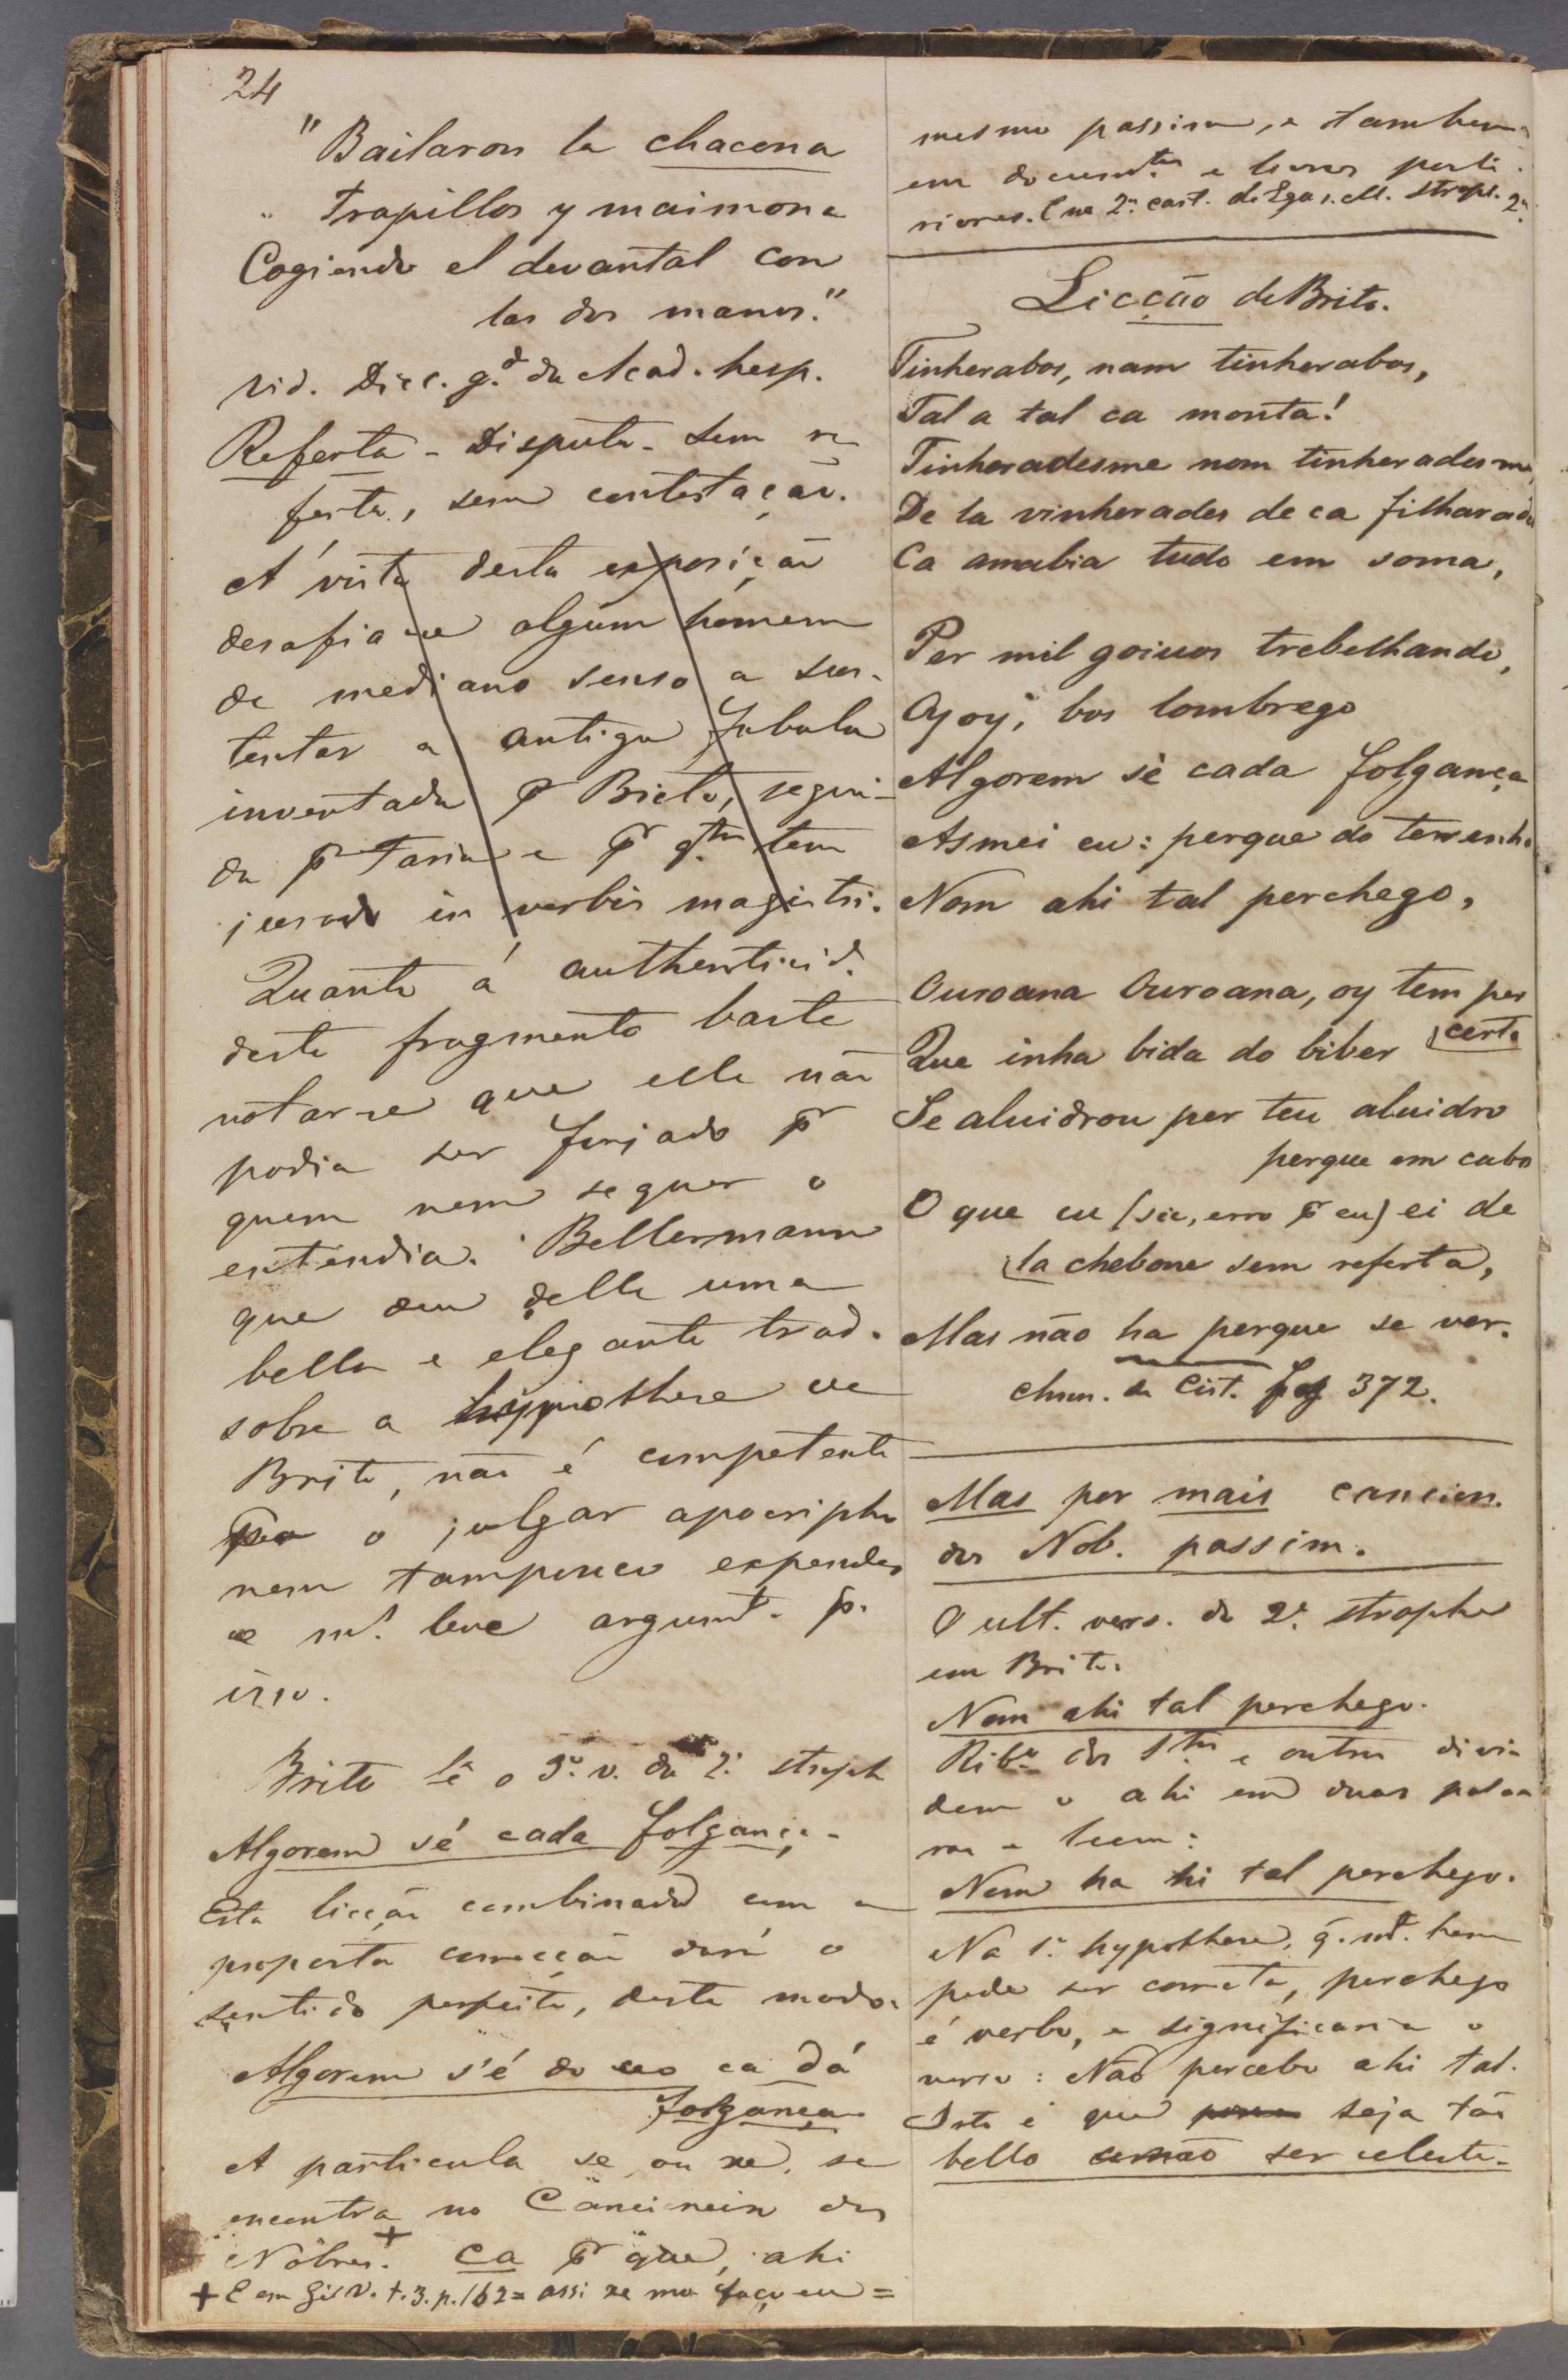 24
"Bailaron la chacona
" Trapillos y maimona
Cogiendo el devantal con
las dos manos."
Vid. Dicc. g.d da Acad. hesp.
Referta - Disputa - Sem re
ferta, sem contestação.
A' vista desta exposição
desafia-se algum homem
de mediano senso a sus-
tentar a antiga fabula
inventada pr Brito, segui-
da pr Faria e pr q.tos tem
jurado in verbis magistri.
Quanto á authenticid.
deste fragmento basta
notar-se que elle não
podia ser forjado pr
quem nem sequer o
entendia. Bellermann
que deu delle uma
bella e elegante trad.
sobre a hypothese de
Brito, não é competente
pa o julgar apocripho
nem tampouco expendeu
o m.s leve argumt. pa.
isso.
Brito lê o 3.º v. da 2.ª stroph
Algorem sé cada folgança-
Esta licção combinada com a
proposta correcção dará o
sentido perfeito, deste modo:
Algorem s'é do ceo ca dá
folgança
A particula se ou xe, se
encontra no Cancioneiro dos
Nobres. + Ca pr que, ahi
+ E em Gil V. t. 3. p. 162 = assi xe mo faço eu =
mesmo passim, e tambem
em documtos e livros poste
riores. (na 2.ª cart. de Egas. M. stroph. 2.ª
Licção de Brito.
Tinherabos, nam tinherabos,
Tal a tal ca monta!
Tinheradesme nom tinheradesme
De la vinherades de ca filharades
Ca amabia tudo em soma,
Per mil goivos trebelhando,
Oy oy, bos lombrego
Algorem sè cada folgança
Asmei eu: perque do terrenho
Nom ahi tal perchego,
Ouroana Ouroana, oy tem per
certo
Que inha bida do biber
Se aluidrou per teu aluidro
perque em cabo
O que eu (sic, erro pr eu) ei de
la chebone sem referta,
Mas não ha perque se ver.
Chron. de Cist. fol 372.
Mas por mais cancion.
dos Nob. passim.
O ult. vers. da 2.ª strophe
em Brito.
Nom ahi tal perchego.
Rib.º dos S.tos e outros divi-
dem o ahi em duas palav
ras e leem:
Nom ha hi tal perchego.
Na 1.ª hypothese, q. mt. bem
pode ser correcta, perchego
é verbo, e significaria o
verso: Não percebo ahi tal.
Isto é que seja tão
bello senão ser celeste.